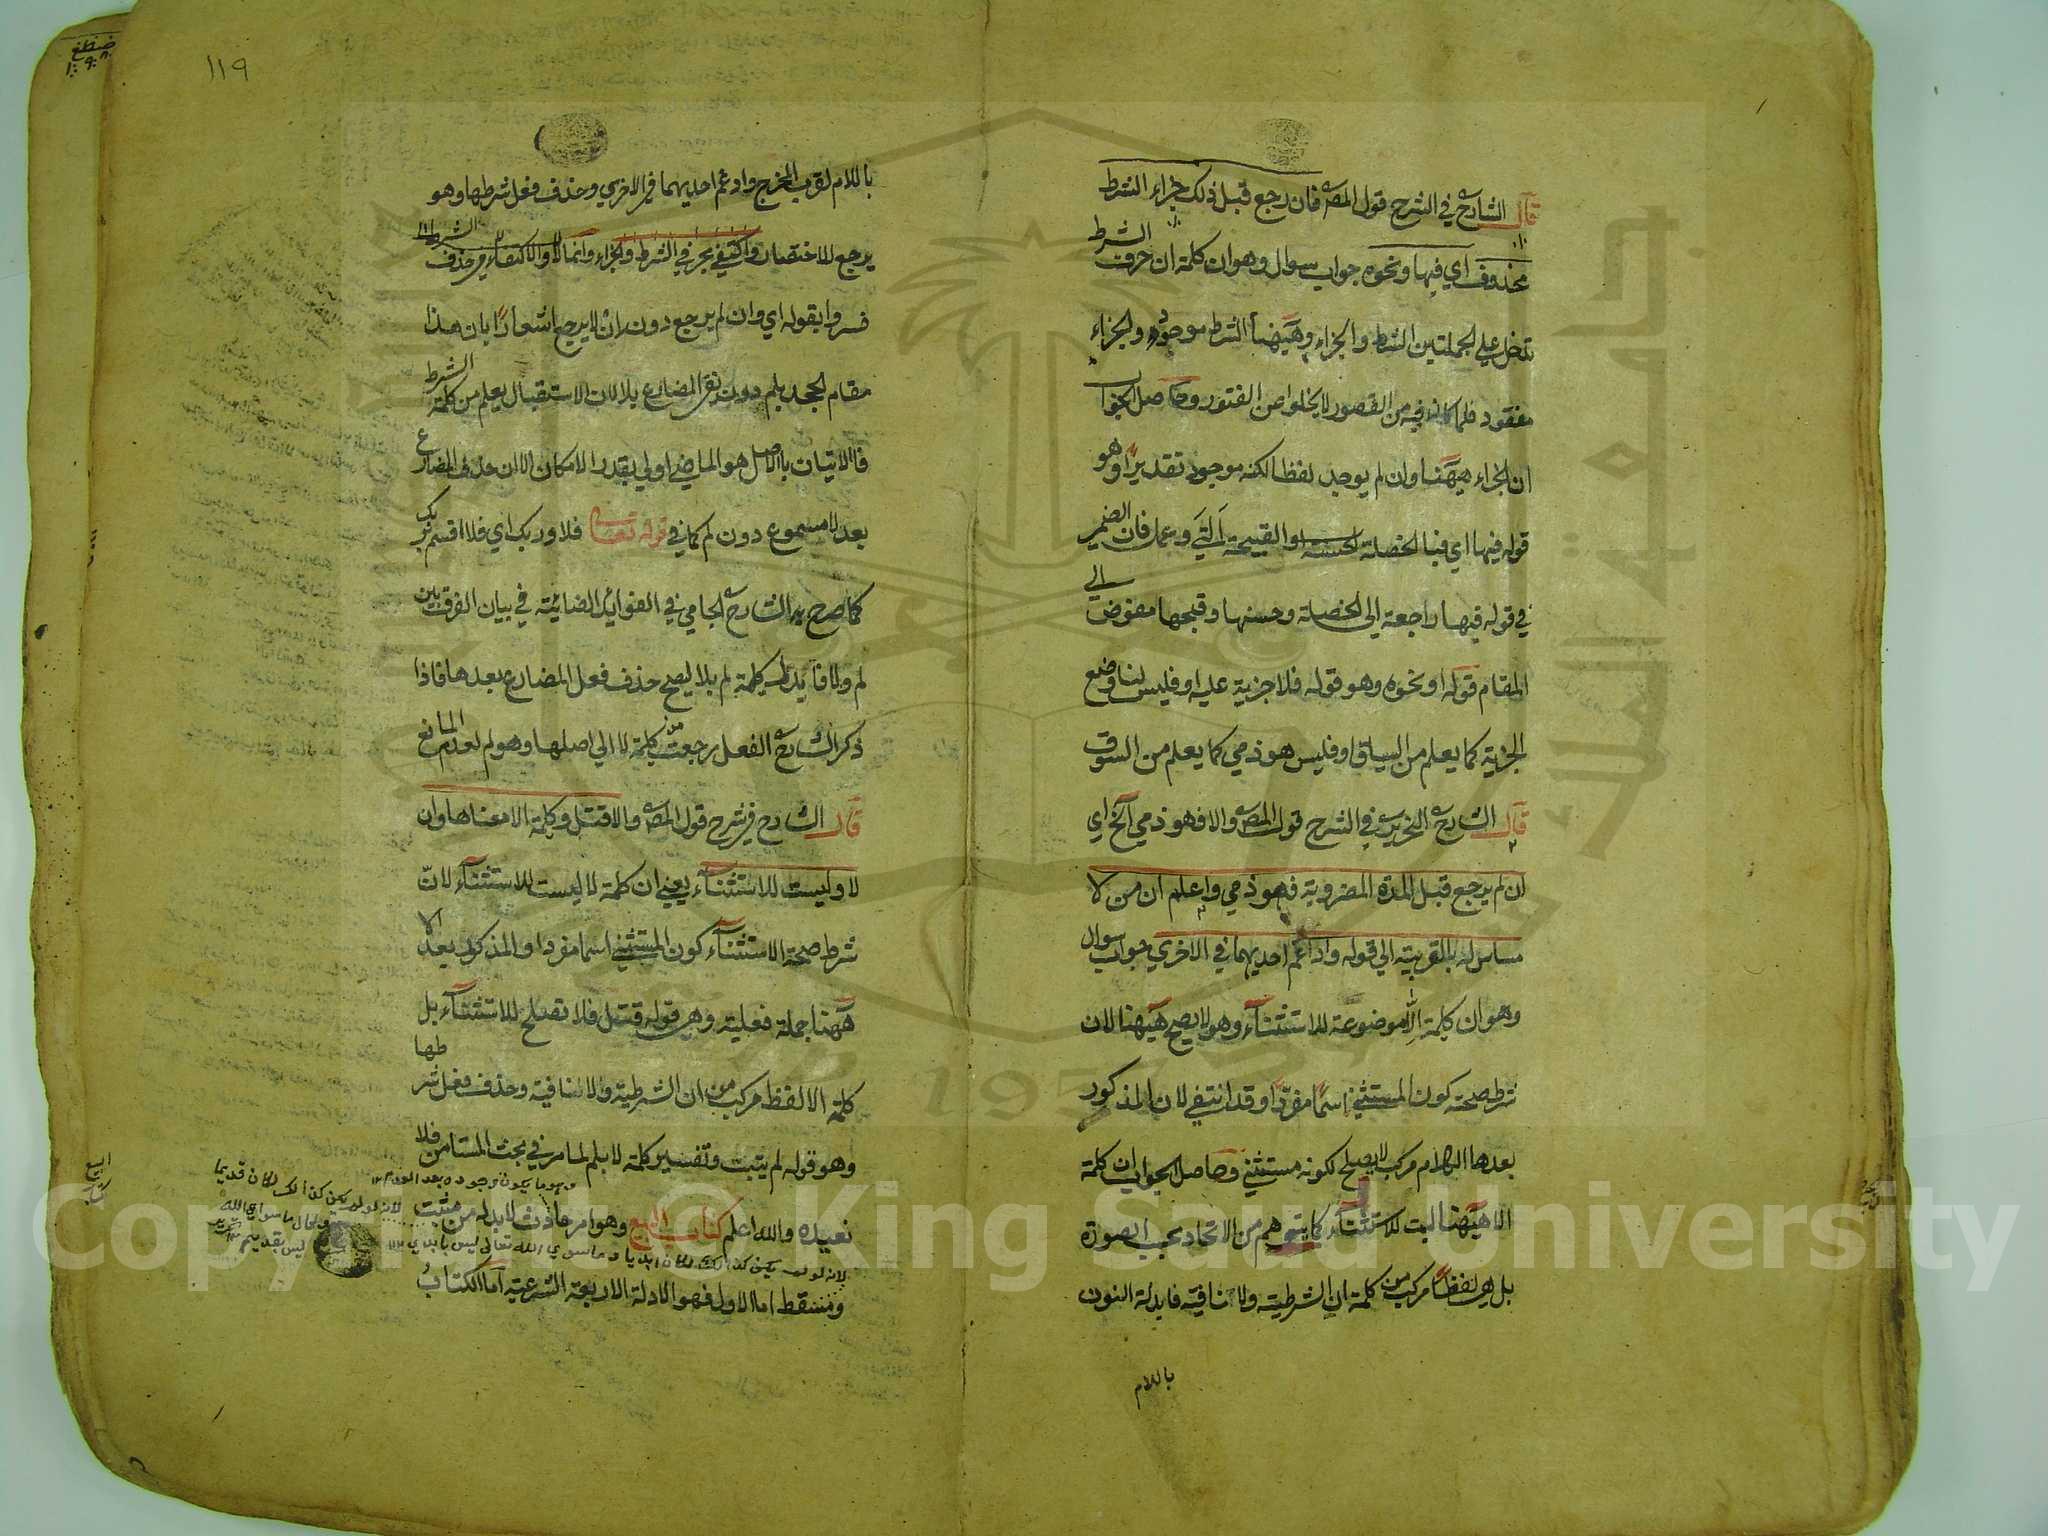 قال الشارح في الشرح قول المصه فان رجع قبل ذلك جزاء الشرط
محذوف اي فبها ونحوه جواب سوال وهو ان كلمة ان حرف الشرط
تدخل علي الجملتين الشرط والجزاء وههنا الشرط موجود والجزاء
مفقود فلما كان فيه من القصور لا يخلوا من الفتور وحاصل الجواب
ان الجزاء ههنا وان لم يوجد لفظا لكنه موجود تقديرا وهو
قوله فبها اي فبا الخصلة الحسنة او القبيحة التي وعمل فان الضمير
في قوله فبها راجعة الي الخصلة وحسنها وقبحها مفوض الي
المقام قوله او نحوه وهو قوله فلا جزية عليه او فليس لنا وضع
الجزية كما يعلم من السياق او فليس هو ذمي كما يعلم من السوق
قال الشارح النحرير في الشرح قول المصه والا فهو ذمي آلخ اي
ان لم يرجع قبل المدة المضروبة فهو ذمي واعلم ان من لا
مساس له بالعربية الي قوله وادغم احديهما في الاخري جواب سوال
وهو ان كلمة الا موضوعة للاستثناء وهو لا يصح ههنا لان
شرط صحته كون المستثني اسما مفردا وقد انتفي لان المذكور
بعدها الكلام مركب لا يصلح لكونه مستثني وحاصل الجواب ان كلمة
الا ههنا ليست للاستثناء كما يتوهم من الاتحاد بحسب الصورة
بل هي لفظا مركب من كلمة ان الشرطية ولا النافية فابدلة النون
باللام
١١٩
باللام لقرب المخرج وادغم احديهما في الاخري وحذف فعل شرطها وهو
يرجع للاختصار واكتفي بحرفي الشرط والجزاء وانما لا والاكتفاء في حذف الشرط
فسروا بقوله اي وان لم يرجع دون ان لا يرجع اشعارا بان هذا
مقام الجحد بلم دون نفي المضارع بلا لان الاستقبال يعلم من كلمة الشرط
فا الاتيان بالاصل هو الماضي اولي بقدر الامكان الا ان حذف المضارع
بعد لا مسموع دون لم كما في قوله تعالي فلا وربك اي فلا اقسم بربك
كما صرح به الشارح الجامي في الفوائد الضيائية في بيان الفرق بين
لم ولا فابدل كلمة لم بلا ليصح حذف فعل المضارع بعدها فاذا
ذكر الشارح الفعل رجعت كلمة لا الي اصلها وهو لم لعدم المانع
قال الشارح في شرح قول المصه والا قتل وكلمة الا معناها وان
لا وليست للاستثناء يعني ان كلمة لا ليست للاستثناء لان
شرط صحة الاستثناء كون المستثني اسما مفردا والمذكور بعد الا
ههنا جملة فعلية وهي قوله قتل فلا تصلح للاستثناء بل
كلمة الا لفظ مركب من ان الشرطية ولا النافية وحذف فعل شرطها
وهو قوله لم يتبت وتفسير كلمة لا بلم لما مر في بحث المستامن فلا
نعيده والله اعلم كتاب البيع وهو امر حادث لا بد له من مثبت
ومسقط اما الاول فهو الادلة الاربعة الشرعية اما الكتاب
وهو ما يكون وجوده بعد العدم ١٢
لانه لو لم يكن كذلك لكان قديما
والحال ما سوي الله
ليس بقديم
لانه لو لم يكن كذلك لكان ابديا وما سوي الله تعالي ليس بابدي ١٢
Copyright © King Saud University
1957